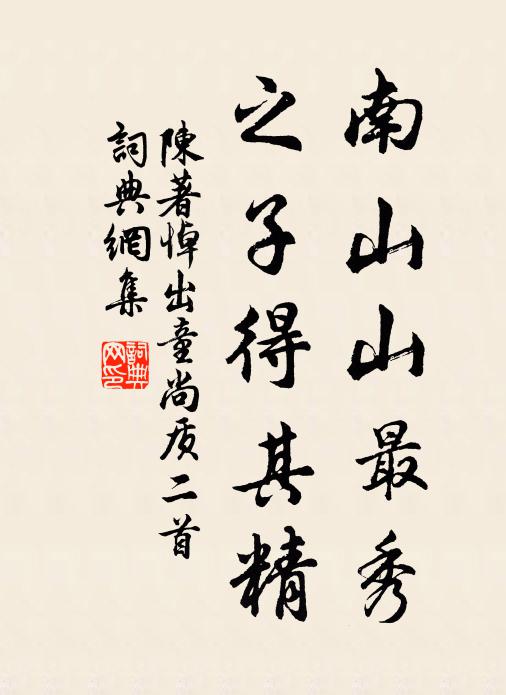 南山山最秀
之子得其精
陳著悼出童尚质二首
詞典網集
詞典网印